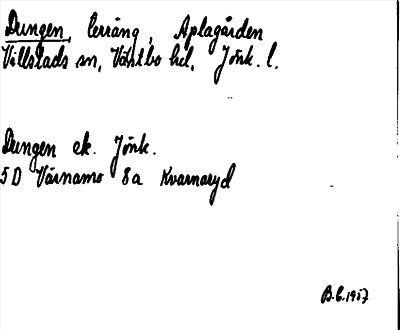 Dungen, terräng, Aplagården
Villstads sn, Västbo hd, Jönk. l.
Dungen ek. Jönk.
5D Värnamo 8a Kvarnaryd
B.C. 1957